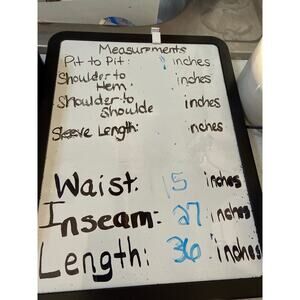 Measurements
Pit to Pit: inches
Shoulder to inches
Hem
Shoulder to inches
shoulde
Sleeve Length: nches
Waist: 15 inches
Inseam: 27 inches
Length: 36 inches